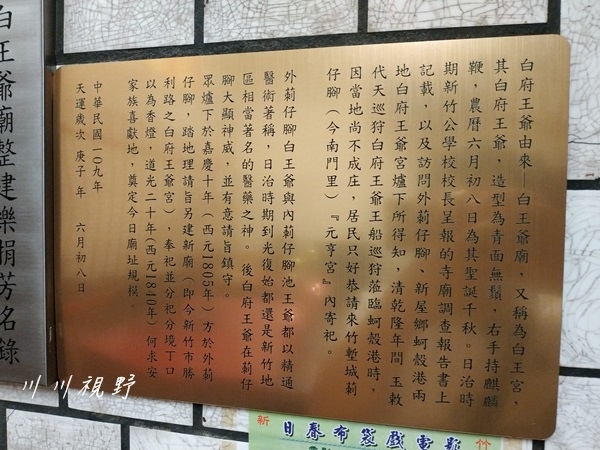 白府王爺由來—白王爺廟，又稱為白王宮，
其白府王爺，造型為青面無鬚，右手持麒麟
鞭，農曆六月初八日為其聖誕千秋。日治時
期新竹公學校校長呈報的寺廟調查報告書上
記載，以及訪問外莿仔腳、新屋鄉蚵殼港兩
地白府王爺宮爐下所得知，清乾隆年間 玉敕
代天巡狩白府王爺王船巡狩蒞臨蚵殼港時，
因當地尚不成庄，居民只好恭請來竹塹城莿
仔腳（今南門里）『元亨宮』內寄祀。
外莿仔腳白王爺與內莿仔腳池王爺都以精通
醫術著稱，日治時期到光復始都還是新竹地
區相當著名的醫藥之神。後白府王爺在莿仔
腳大顯神威，並有意請旨鎮守。
眾爐下於嘉慶十年(西元1805年）方於外莿
仔腳，踏地理請旨另建新廟（即今新竹市勝
利路之白府王爺宮），奉祀並分祀分境丁口
以為香燈，道光二十年(西元1840年）何求安
家族喜獻地，奠定今日廟址規模。
中華民國一0九年
天運歲次 庚子 年 六月初八日
白王爺廟整建樂捐芳名錄
川川視野
新
竹
日春布袋戲電影